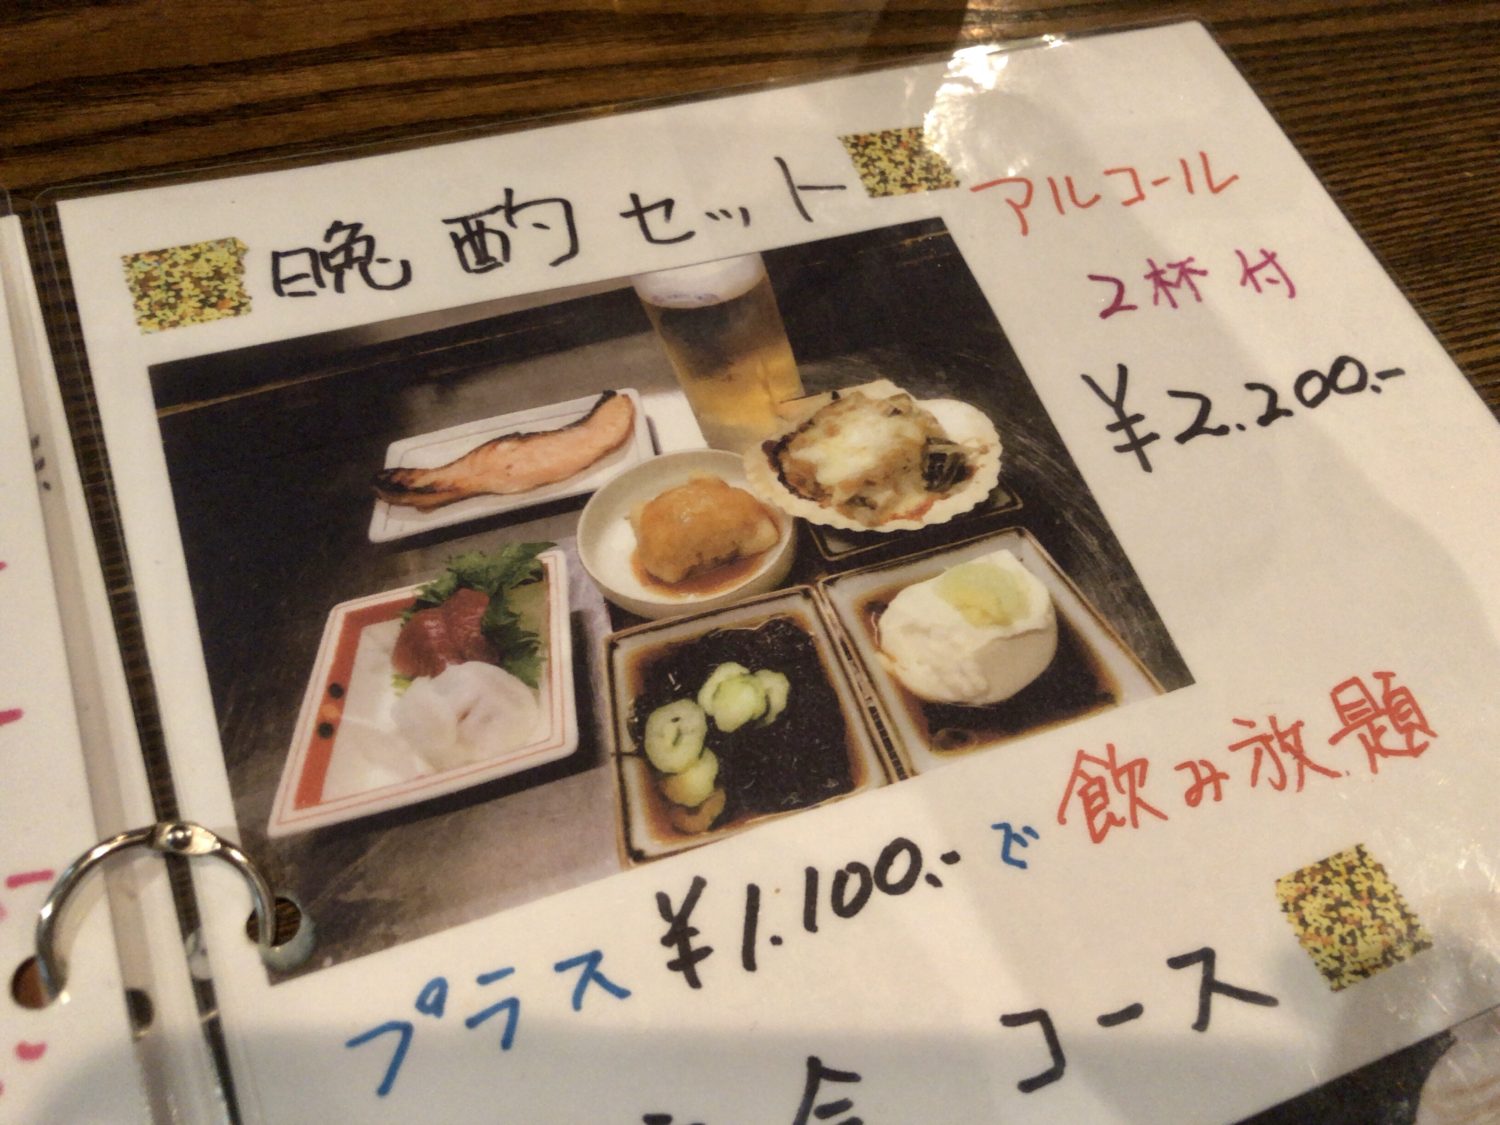 晩酌セット
アルコール
2杯付
¥2.200.-
プラス ¥1.100.- で 飲み放題
コース